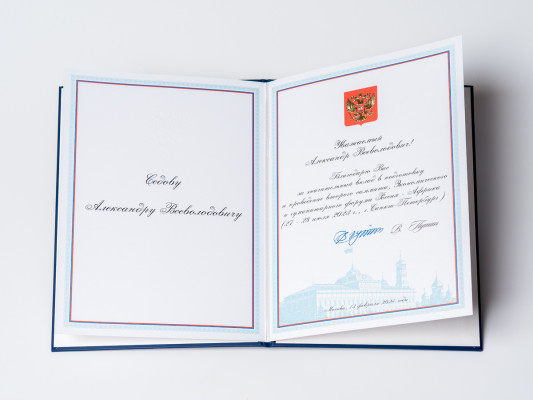 Седову
Александру Всеволодовичу
Уважаемый
Александр Всеволодович!
Благодарю Вас
за значительный вклад в подготовку
и проведение второго саммита, Экономического
и гуманитарного форума Россия - Африка
(27 - 28 июля 2023 г., г.Санкт-Петербург)
В. Путин
Москва
февраля
года